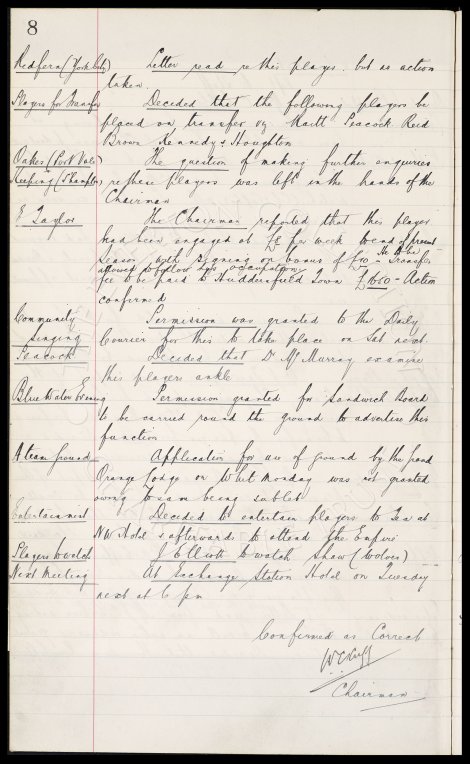 8
Redfern (York City) Letter read re this player. but no action
taken.
Players for Transfer Decided that the following players be
placed on transfer viz Raitt Peacock Reid
Brown Kennedy & Houghton
Oakes (Port Vale) The question of making further enquiries
Keeping (S'hampton) re these players was left in the hands of the
Chairman
E Taylor The Chairman reported that this player
had been engaged at £8 per week to end of present
season with signing on bonus of £10 - Transfer
He to be
allowed to follow his occupation
fee to be paid to Huddersfield Town £1650 - Action
confirmed
Community Permission was granted to the Daily
Singing Courier for this to take place on Sat next.
Peacock Decided that Dr McMurray examine
this players ankle
Blue Water Evening Permission granted for Sandwich Board
to be carried round the ground to advertise this
function
A team Ground Application for use of ground by the Grand
Orange Lodge on Whit Monday was not granted
owing to same being sublet
Entertainment Decided to entertain players to Tea at
NW Hotel & afterwards to attend the Empire
Players to watch J Elliott to watch Shaw (Wolves)
Next Meeting At Exchange Station Hotel on Tuesday
next at 6 pm
Confirmed as Correct
W C Cuff
Chairman